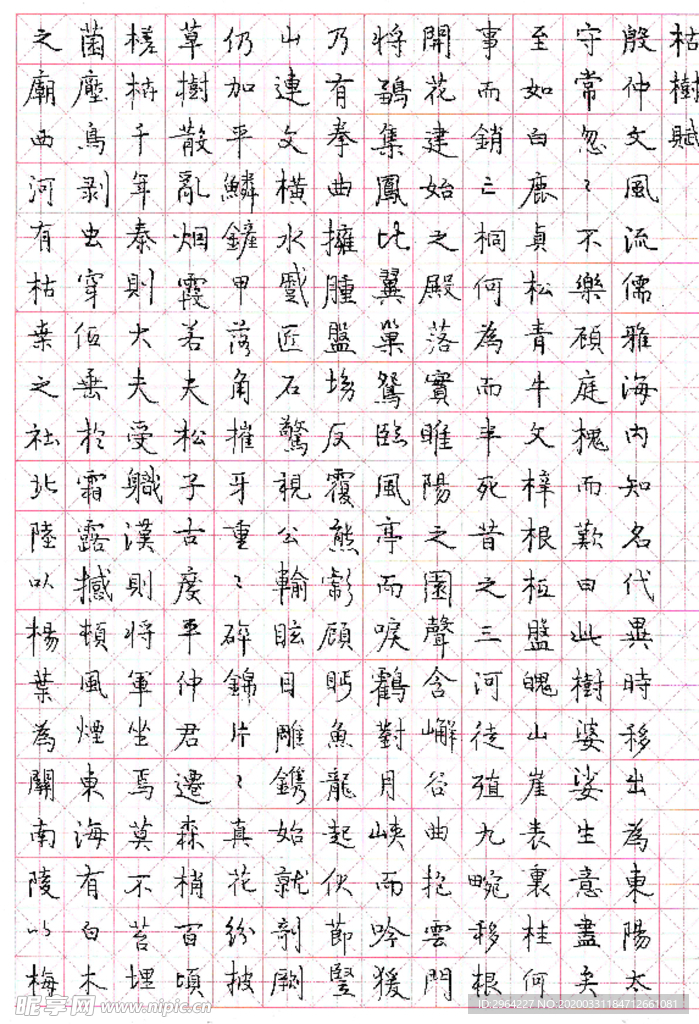 枯樹賦
殷仲文風流儒雅海内知名代異時移出為東陽太
守常忽〻不樂顧庭槐而歎曰此樹婆娑生意盡矣
至如白鹿貞松青牛文梓根柢盤魄山崖表裏桂何
事而銷亡桐何為而半死昔之三河徒殖九畹移根
開花建始之殿落實睢陽之園聲含嶰谷曲抱雲門
將鶵集鳳比翼巢鴛臨風亭而唳鶴對月峽而吟猨
乃有拳曲擁腫盤坳反覆熊彪顧眄魚龍起伏節豎
山連文橫水蹙匠石驚視公輸眩目雕鐫始就剞劂
仍加平鱗鏟甲落角摧牙重〻碎錦片〻真花紛披
草樹散亂烟霞若夫松子古度平仲君遷森梢百頃
槎枿千年秦則大夫受職漢則將軍坐焉莫不苔埋
菌壓鳥剥虫穿低垂於霜露撼頓風煙東海有白木
之廟西河有枯桒之社北陸以楊葉為關南陵以梅
昵享网 www.nipic.cn
ID:2964227 NO.20200331184712661081